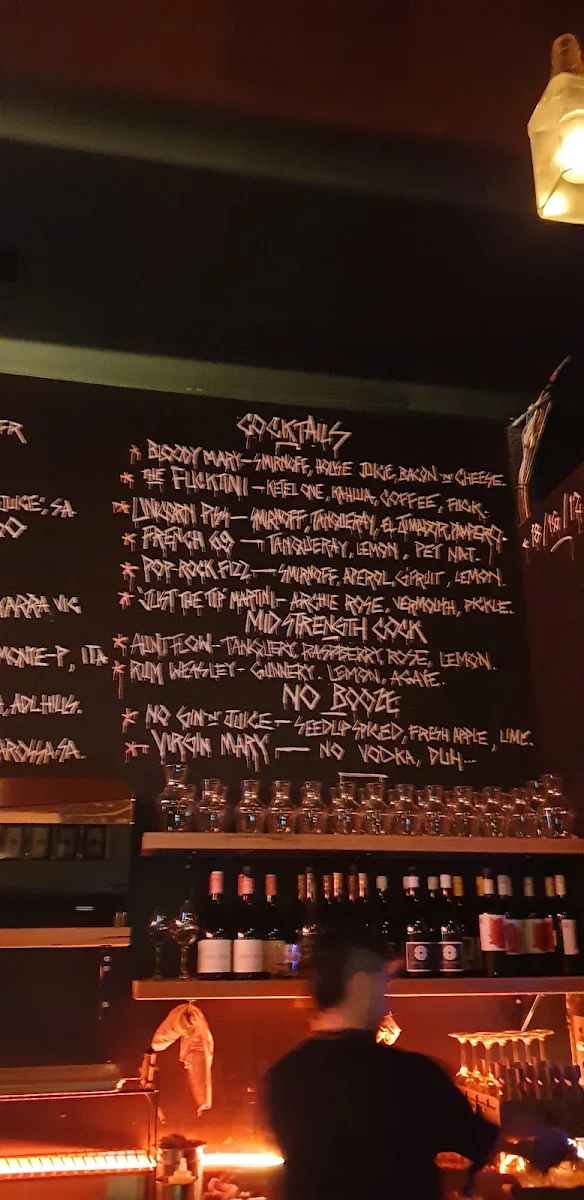 COCKTAILS
* BLOODY MARY - SMIRNOFF, HOUSE JUICE, BACON 'N' CHEESE.
* THE FUCKTINI - KETEL ONE, KAHLUA, COFFEE, FUCK.
* UNICORN PISS - SMIRNOFF, TANQUERAY, EL JIMADOR, PAMPERO.
* FRENCH 69 - TANQUERAY, LEMON, PET NAT.
* POP ROCK FIZZ - SMIRNOFF, APEROL, G'FRUIT, LEMON.
* "JUST THE TIP" MARTINI - ARCHIE ROSE, VERMOUTH, PICKLE.
MID STRENGTH COCK
* AUNT FLOW - TANQUERY, RASPBERRY, ROSE, LEMON.
* RUM WEASLEY - GUNNERY, LEMON, AGAVE.
NO BOOZE
* NO GIN 'N' JUICE - SEEDLIP SPICED, FRESH APPLE, LIME.
* VIRGIN MARY - NO VODKA, DUH...
JUICE", SA.
YARRA VIC
MONTE-P, ITA
, ADL HILLS.
BAROSSA SA.